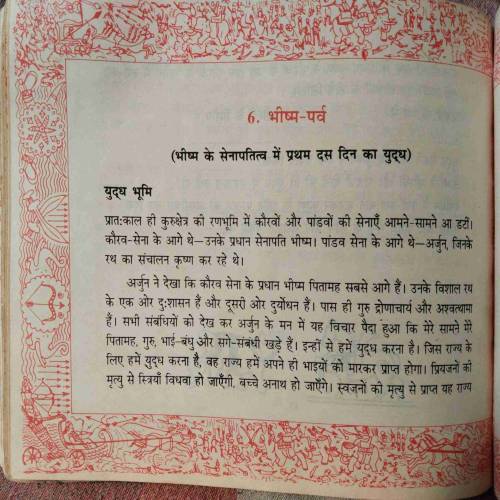 6. भीष्म-पर्व
(भीष्म के सेनापतित्व में प्रथम दस दिन का युद्ध)
युद्ध भूमि
प्रात:काल ही कुरुक्षेत्र की रणभूमि में कौरवों और पांडवों की सेनाएँ आमने-सामने आ डटीं।
कौरव-सेना के आगे थे—उनके प्रधान सेनापति भीष्म। पांडव सेना के आगे थे—अर्जुन, जिनके
रथ का संचालन कृष्ण कर रहे थे।
अर्जुन ने देखा कि कौरव सेना के प्रधान भीष्म पितामह सबसे आगे हैं। उनके विशाल रथ
के एक ओर दु:शासन हैं और दूसरी ओर दुर्योधन हैं। पास ही गुरु द्रोणाचार्य और अश्वत्थामा
हैं। सभी संबंधियों को देख कर अर्जुन के मन में यह विचार पैदा हुआ कि मेरे सामने मेरे
पितामह, गुरु, भाई-बंधु और सगे-संबंधी खड़े हैं। इन्हीं से हमें युद्ध करना है। जिस राज्य के
लिए हमें युद्ध करना है, वह राज्य हमें अपने ही भाइयों को मारकर प्राप्त होगा। प्रियजनों की
मृत्यु से स्त्रियाँ विधवा हो जाएँगी, बच्चे अनाथ हो जाएँगे। स्वजनों की मृत्यु से प्राप्त यह राज्य